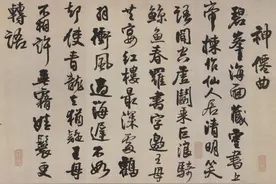 神僊曲
碧峯海面藏靈書上
帝揀作仙人居清明笑
語聞空虛鬪乘巨浪騎
鯨魚春羅書字邀王母
共宴紅樓最深處鶴
羽衝風過海遲不如
却使青龍去猶疑王母
不相許垂霧娃鬟更
轉語